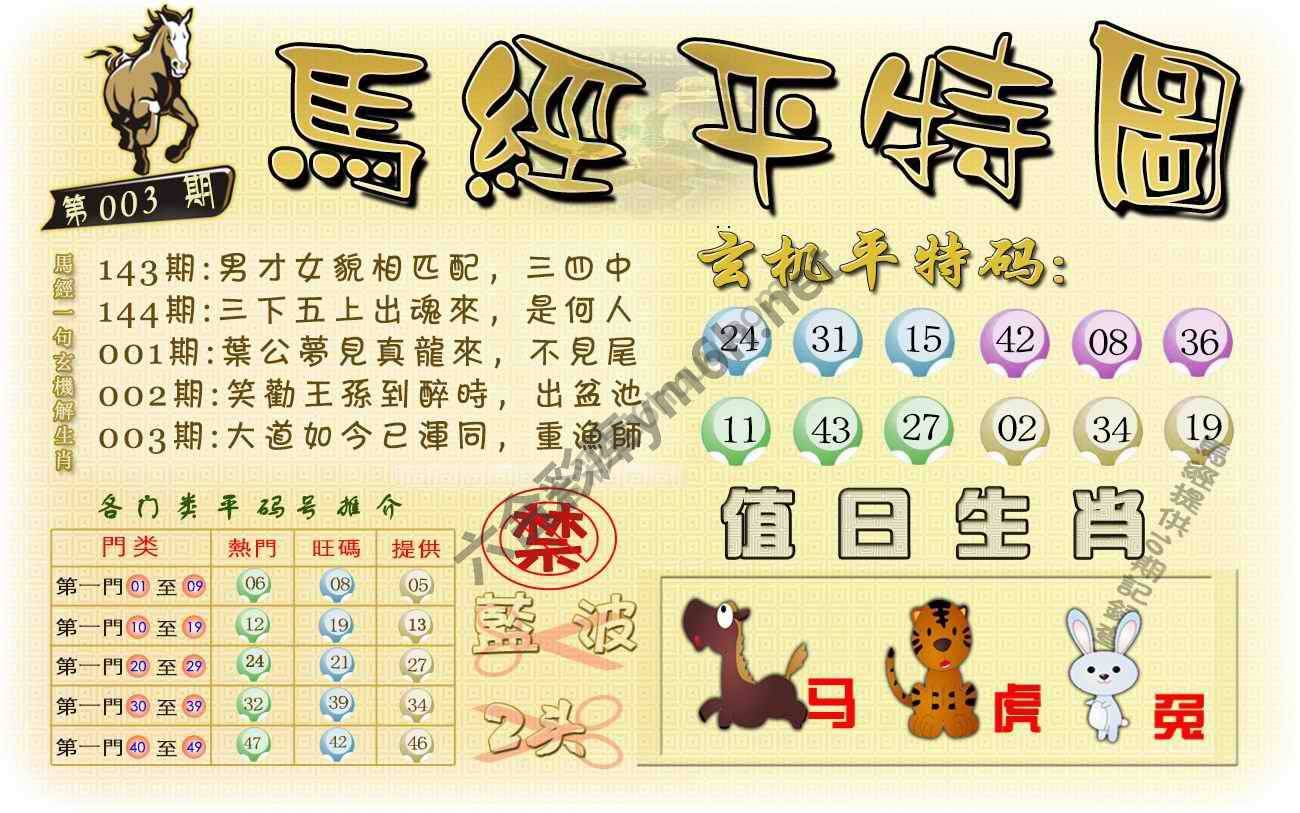 馬經平特圖
第003期
馬經一句玄機解生肖
143期:男才女貌相匹配，三四中
144期:三下五上出魂來，是何人
001期:葉公夢見真龍來，不見尾
002期:笑勸王孫到醉時，出盆池
003期:大道如今已渾同，重漁師
玄机平特码:
24 31 15 42 08 36
11 43 27 02 34 19
各门类平码号推介
門类 熱門 旺碼 提供
第一門 01 至 09 06 08 05
第一門 10 至 19 12 19 13
第一門 20 至 29 24 21 27
第一門 30 至 39 32 39 34
第一門 40 至 49 47 42 46
禁
藍波
2头
值日生肖
马 虎 兔